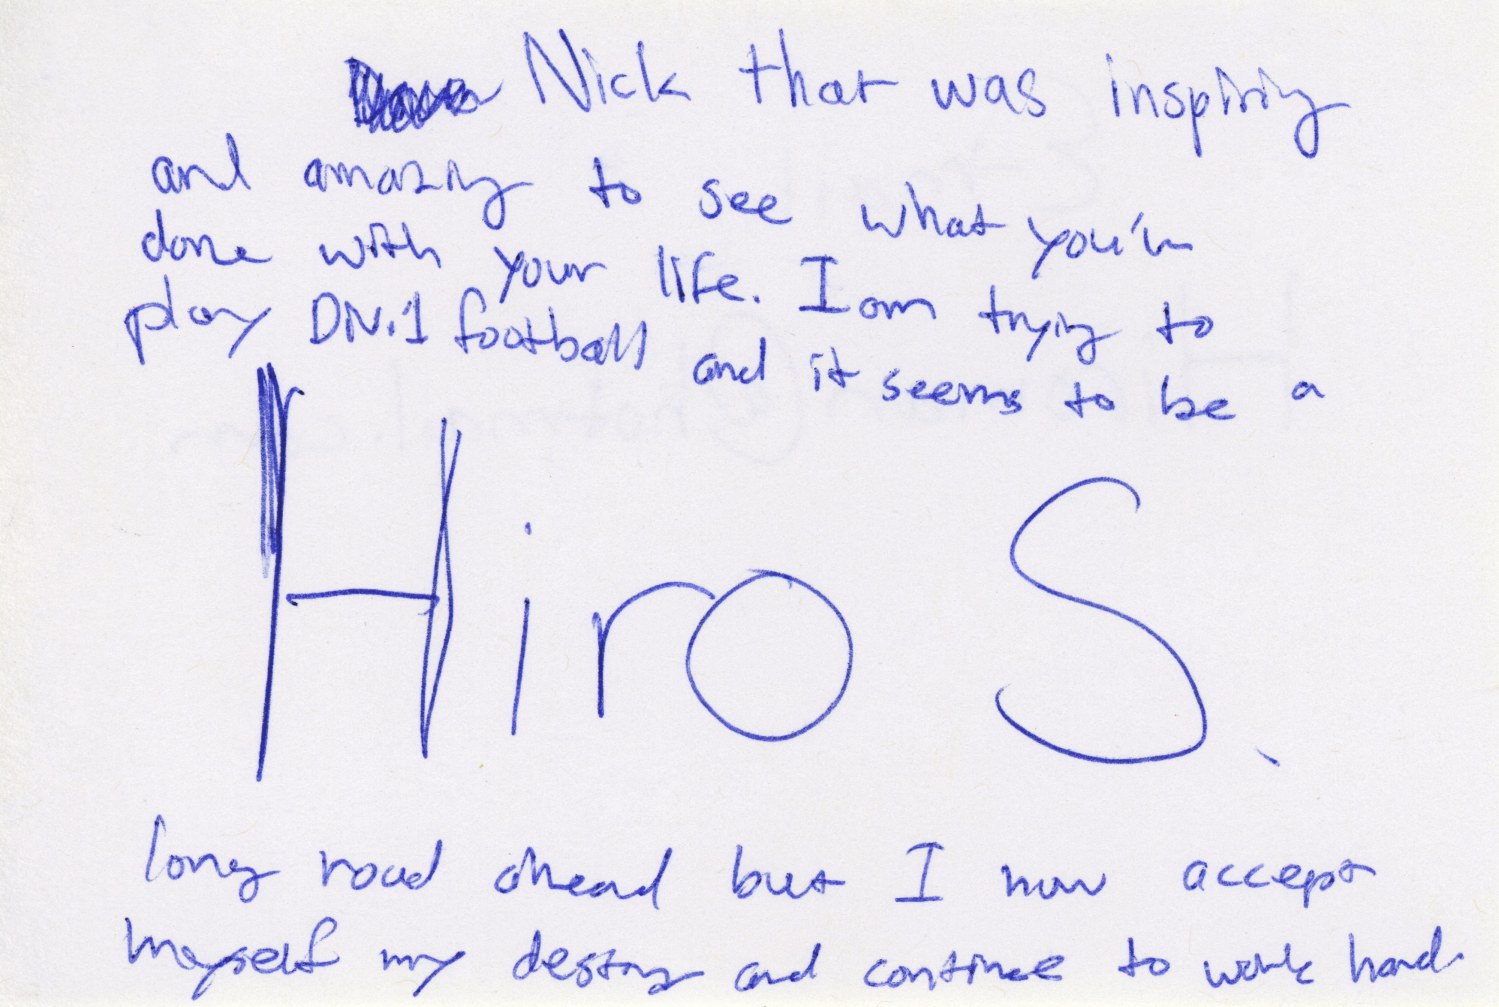 Nick that was inspiring
and amazing to see what you've
done with your life. I am trying to
play Div.1 football and it seems to be a
Hiro S.
long road ahead but I now accept
myself my destiny and continue to work hard.